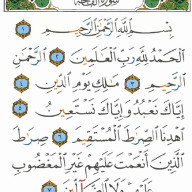 سورة الفاتحة
بسم الله الرحمن الرحيم ١
الحمد لله رب العالمين ٢ الرحمن
الرحيم ٣ مالك يوم الدين ٤
إياك نعبد وإياك نستعين ٥
اهدنا الصراط المستقيم ٦ صراط
الذين أنعمت عليهم غير المغضوب
عليهم ولا الضالين ٧